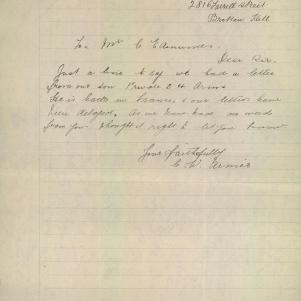 281 Farrell street
Broken Hill
To Mr C Edmunds.
Dear Sir.
Just a line to say we had a letter
from our son Private E H Armis
He is back in France & our letters have
been delayed. As we have had no word
from you I thought it right to let you know
Yours faithfully
C W. Armis